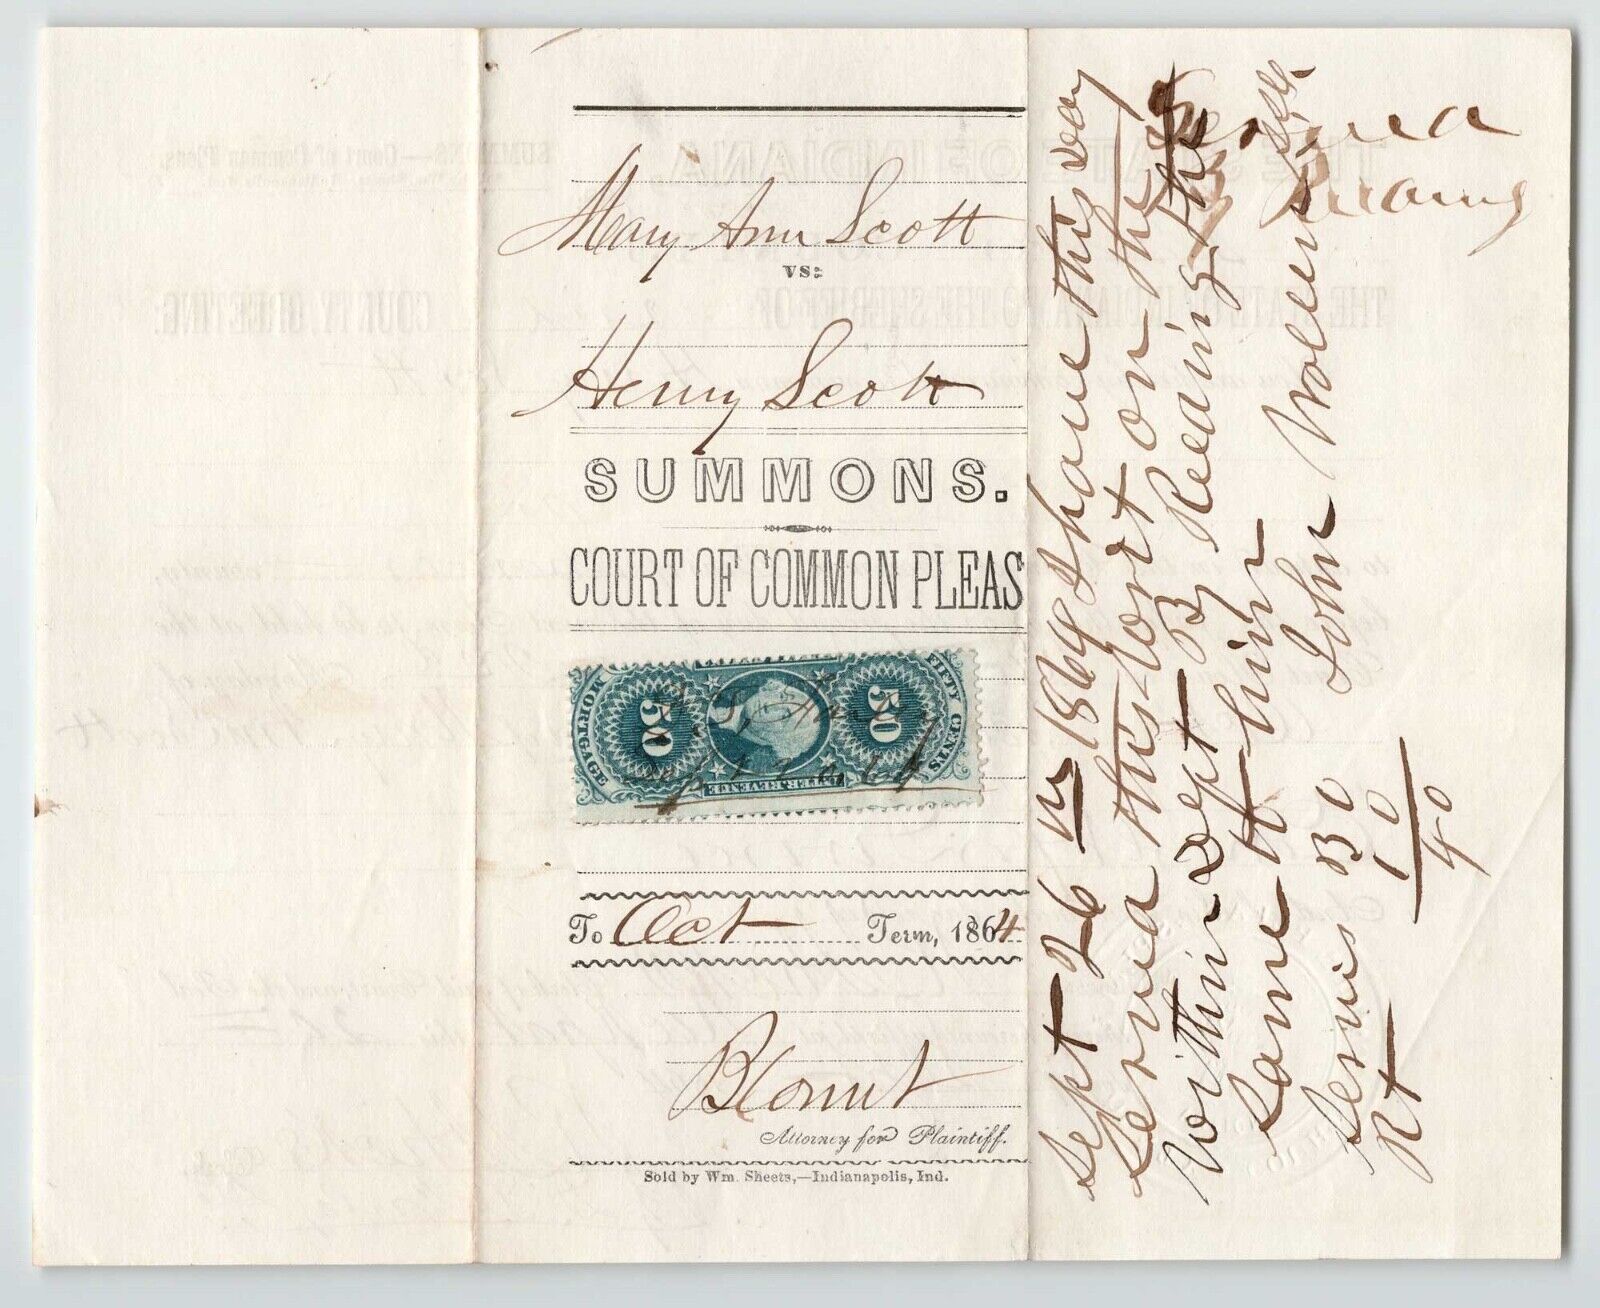 Mary Ann Scott
vs:
Henry Scott
SUMMONS.
COURT OF COMMON PLEAS
MORTGAGE
50
50
FIFTY CENTS
INTER. REVENUE
Sept 24 64
To Oct Term, 1864
Blount
Attorney for Plaintiff.
Sold by Wm. Sheets,—Indianapolis, Ind.
Sept 26 1864 I have this day
Served this writ on the
within Deft By Reading the
Same to him
John
Servis 30
Rt 10
40
Served
By Reading